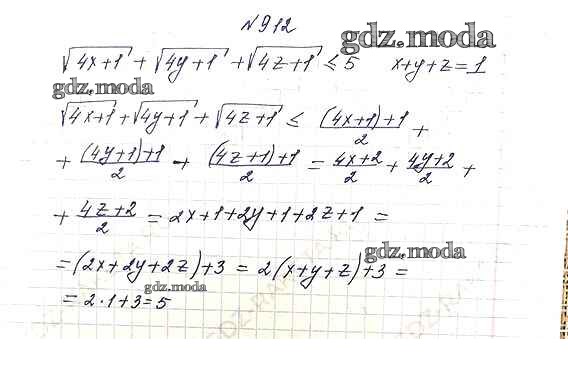 № 912
gdz.moda
√4x+1 + √4y+1 + √4z+1 ≤ 5   x+y+z=1
gdz.moda
√4x+1 + √4y+1 + √4z+1 ≤ (4x+1)+1/2 +
+ (4y+1)+1/2 + (4z+1)+1/2 = 4x+2/2 + 4y+2/2 +
+ 4z+2/2 = 2x+1+2y+1+2z+1 =
gdz.moda
=(2x+2y+2z)+3 = 2(x+y+z)+3 =
gdz.moda
= 2·1+3=5